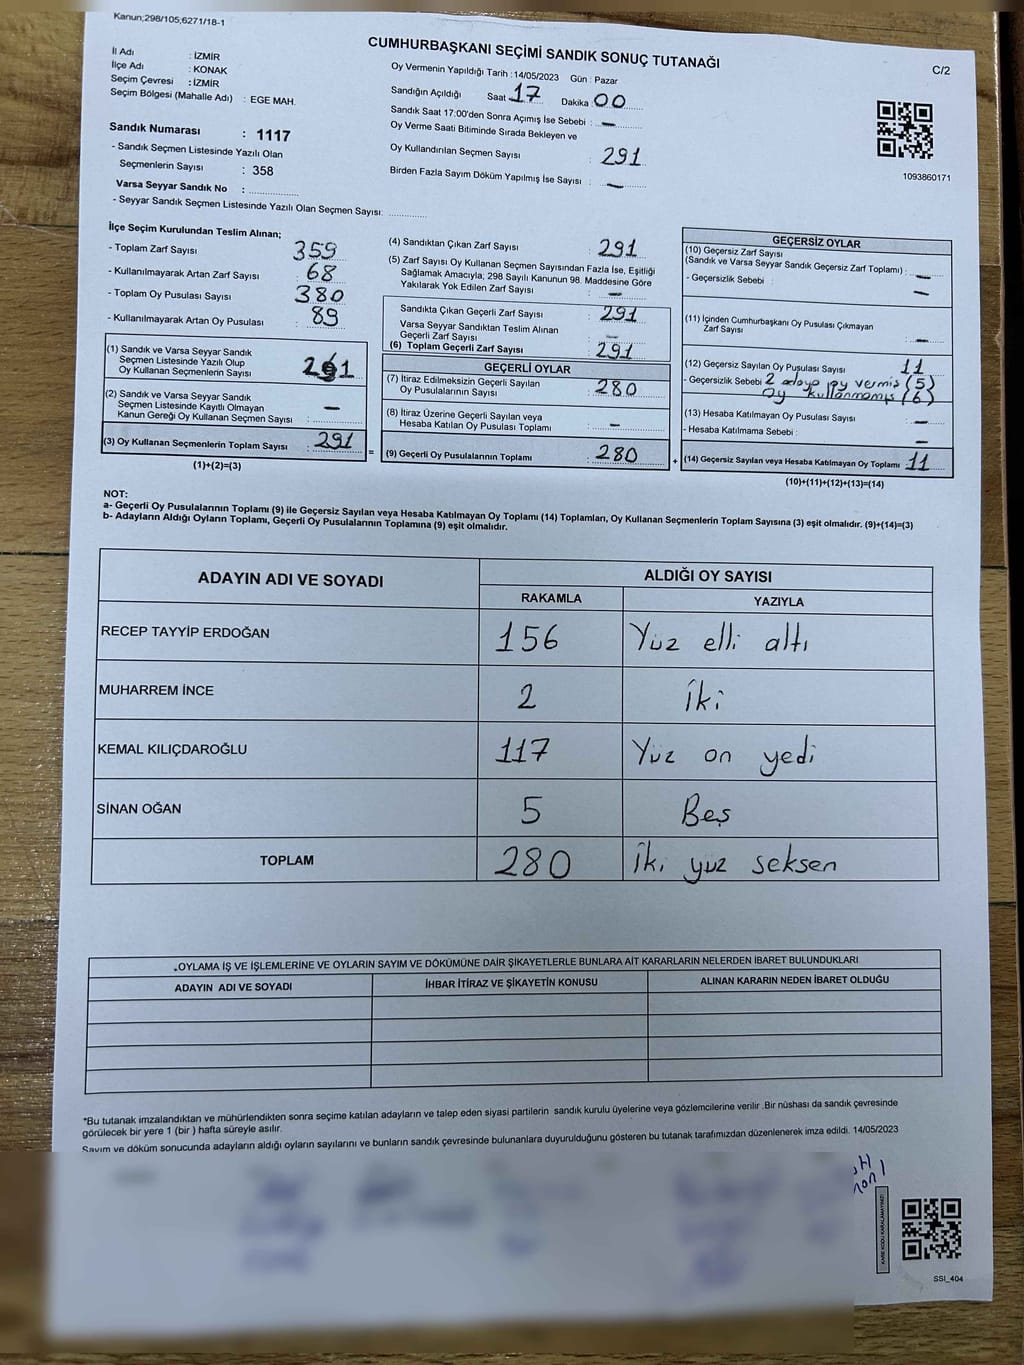 Kanun;298/105;6271/18-1
CUMHURBAŞKANI SEÇİMİ SANDIK SONUÇ TUTANAĞI
C/2
İl Adı : İZMİR
İlçe Adı : KONAK
Seçim Çevresi : İZMİR
Seçim Bölgesi (Mahalle Adı) : EGE MAH.
Sandık Numarası : 1117
- Sandık Seçmen Listesinde Yazılı Olan
Seçmenlerin Sayısı : 358
Varsa Seyyar Sandık No :
- Seyyar Sandık Seçmen Listesinde Yazılı Olan Seçmen Sayısı:
Oy Vermenin Yapıldığı Tarih : 14/05/2023 Gün : Pazar
Sandığın Açıldığı Saat 17 Dakika 00
Sandık Saat 17:00'den Sonra Açımış İse Sebebi : —
Oy Verme Saati Bitiminde Sırada Bekleyen ve
Oy Kullandırılan Seçmen Sayısı : 291
Birden Fazla Sayım Döküm Yapılmış İse Sayısı : —
1093860171
İlçe Seçim Kurulundan Teslim Alınan;
- Toplam Zarf Sayısı : 359
- Kullanılmayarak Artan Zarf Sayısı : 68
- Toplam Oy Pusulası Sayısı : 380
- Kullanılmayarak Artan Oy Pusulası : 89
(1) Sandık ve Varsa Seyyar Sandık
Seçmen Listesinde Yazılı Olup
Oy Kullanan Seçmenlerin Sayısı : 291
(2) Sandık ve Varsa Seyyar Sandık
Seçmen Listesinde Kayıtlı Olmayan
Kanun Gereği Oy Kullanan Seçmen Sayısı : —
(3) Oy Kullanan Seçmenlerin Toplam Sayısı : 291
(1)+(2)=(3)
(4) Sandıktan Çıkan Zarf Sayısı : 291
(5) Zarf Sayısı Oy Kullanan Seçmen Sayısından Fazla İse, Eşitliği
Sağlamak Amacıyla; 298 Sayılı Kanunun 98. Maddesine Göre
Yakılarak Yok Edilen Zarf Sayısı : —
Sandıkta Çıkan Geçerli Zarf Sayısı : 291
Varsa Seyyar Sandıktan Teslim Alınan
Geçerli Zarf Sayısı : —
(6) Toplam Geçerli Zarf Sayısı : 291
GEÇERLİ OYLAR
(7) İtiraz Edilmeksizin Geçerli Sayılan
Oy Pusulalarının Sayısı : 280
(8) İtiraz Üzerine Geçerli Sayılan veya
Hesaba Katılan Oy Pusulası Toplamı : —
= (9) Geçerli Oy Pusulalarının Toplamı : 280
GEÇERSİZ OYLAR
(10) Geçersiz Zarf Sayısı
(Sandık ve Varsa Seyyar Sandık Geçersiz Zarf Toplamı) : —
- Geçersizlik Sebebi : —
(11) İçinden Cumhurbaşkanı Oy Pusulası Çıkmayan
Zarf Sayısı : —
(12) Geçersiz Sayılan Oy Pusulası Sayısı : 11
- Geçersizlik Sebebi 2 adaya oy vermiş (5)
Oy kullanmamış (6)
(13) Hesaba Katılmayan Oy Pusulası Sayısı : —
- Hesaba Katılmama Sebebi : —
+ (14) Geçersiz Sayılan veya Hesaba Katılmayan Oy Toplamı : 11
(10)+(11)+(12)+(13)=(14)
NOT:
a- Geçerli Oy Pusulalarının Toplamı (9) ile Geçersiz Sayılan veya Hesaba Katılmayan Oy Toplamı (14) Toplamları, Oy Kullanan Seçmenlerin Toplam Sayısına (3) eşit olmalıdır. (9)+(14)=(3)
b- Adayların Aldığı Oyların Toplamı, Geçerli Oy Pusulalarının Toplamına (9) eşit olmalıdır.
ADAYIN ADI VE SOYADI
ALDIĞI OY SAYISI
RAKAMLA YAZIYLA
RECEP TAYYİP ERDOĞAN 156 Yüz elli altı
MUHARREM İNCE 2 İki
KEMAL KILIÇDAROĞLU 117 Yüz on yedi
SİNAN OĞAN 5 Beş
TOPLAM 280 İki yüz seksen
.OYLAMA İŞ VE İŞLEMLERİNE VE OYLARIN SAYIM VE DÖKÜMÜNE DAİR ŞİKAYETLERLE BUNLARA AİT KARARLARIN NELERDEN İBARET BULUNDUKLARI
ADAYIN ADI VE SOYADI İHBAR İTİRAZ VE ŞİKAYETİN KONUSU ALINAN KARARIN NEDEN İBARET OLDUĞU
*Bu tutanak imzalandıktan ve mühürlendikten sonra seçime katılan adayların ve talep eden siyasi partilerin sandık kurulu üyelerine veya gözlemcilerine verilir .Bir nüshası da sandık çevresinde
görülecek bir yere 1 (bir ) hafta süreyle asılır.
Sayım ve döküm sonucunda adayların aldığı oyların sayılarını ve bunların sandık çevresinde bulunanlara duyurulduğunu gösteren bu tutanak tarafımızdan düzenlenerek imza edildi. 14/05/2023
KARE KODU KARALAMAYINIZ!
SSI_404